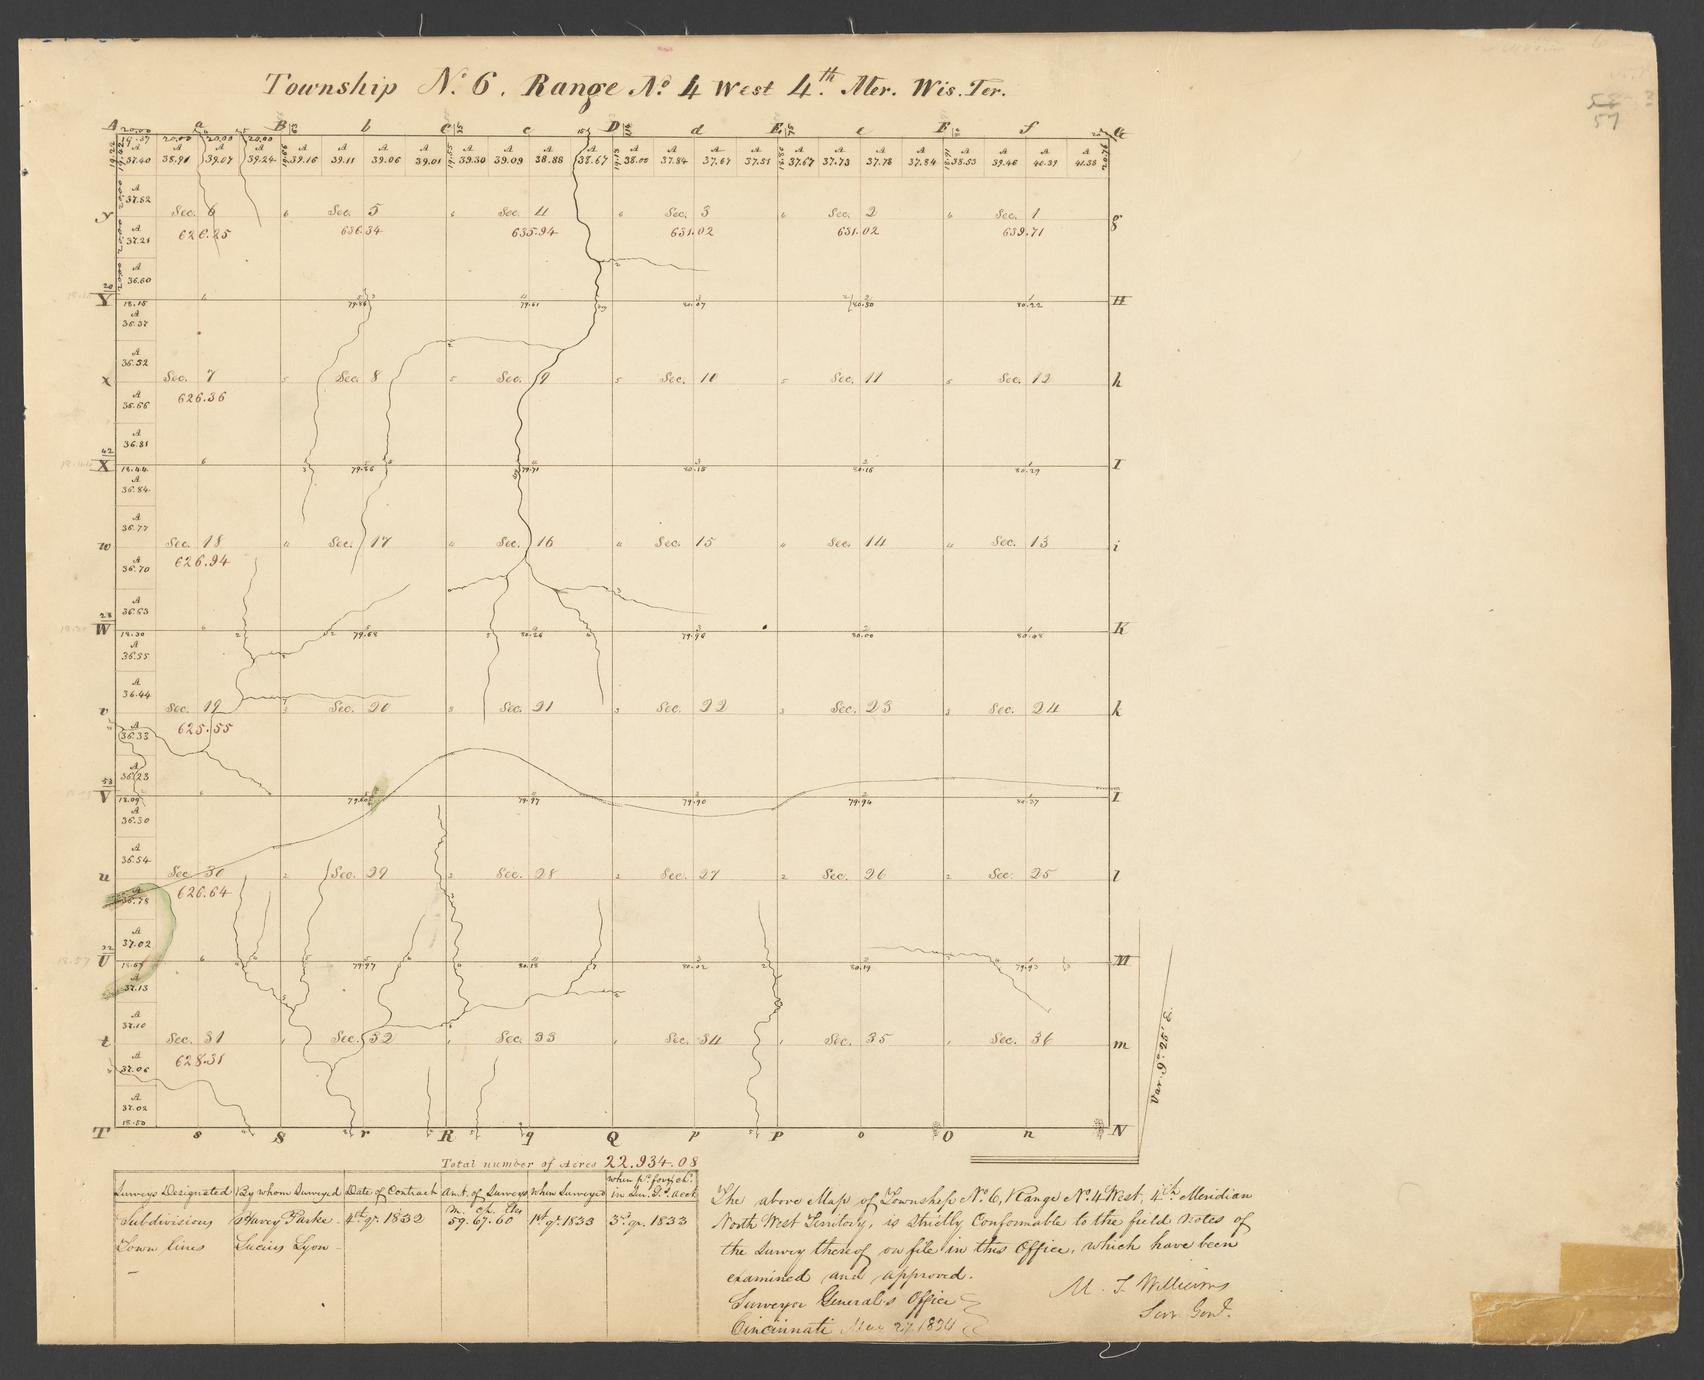 Township No. 6. Range No. 4 West 4th. Mer. Wis. Ter.
57
A a B b C c D d E e F f G
20.00 20.00 20.00 20.00
A A A A A A A A A A A A A A A A A A A A A A A A
37.40 38.91 39.07 39.24 39.16 39.11 39.06 39.01 39.30 39.09 38.88 38.67 38.00 37.84 37.67 37.51 37.67 37.73 37.78 37.84 38.53 39.46 40.39 41.38
A
37.52
y Sec. 6 6 Sec. 5 6 Sec. 4 6 Sec. 3 6 Sec. 2 6 Sec. 1 g
A
37.21 626.25 636.34 635.94 631.02 631.02 639.71
A
36.60
Y 18.15 6 79.86 79.61 80.07 80.50 80.22 H
A
36.37
A
36.52
x Sec. 7 5 Sec. 8 5 Sec. 9 5 Sec. 10 5 Sec. 11 5 Sec. 12 h
A
36.66 626.36
A
36.81
42
X 18.44 6 79.86 79.71 80.15 80.16 80.29 I
A
36.84
A
36.77
w Sec. 18 4 Sec. 17 4 Sec. 16 4 Sec. 15 4 Sec. 14 4 Sec. 13 i
A
36.70 626.94
A
36.63
28
W 18.30 6 79.68 80.26 79.96 80.00 80.08 K
A
36.55
A
36.44
v Sec. 19 3 Sec. 20 3 Sec. 21 3 Sec. 22 3 Sec. 23 3 Sec. 24 k
A
36.33 625.55
A
36.23
53
V 18.09 79.97 79.90 79.94 80.27 I
A
36.30
A
36.54
u Sec. 30 2 Sec. 29 2 Sec. 28 2 Sec. 27 2 Sec. 26 2 Sec. 25 l
A
36.78 626.64
A
37.02
32
U 18.67 6 79.97 80.18 80.02 80.19 79.93 M
A
37.13
A
37.10
t Sec. 31 1 Sec. 32 1 Sec. 33 1 Sec. 34 1 Sec. 35 1 Sec. 36 m
A
37.06 628.31
A
37.02
18.50
T s S r R q Q p P o O n N
Var. 9° 25' E.
Total number of Acres 22.934.08
Surveys Designated By whom Surveyed Date of Contract Amt. of Surveys When Surveyed
M. ch. lks
Subdivisions Harvey Parke 4th qr. 1832 59.67.60 1st qr. 1833 3d. qr. 1833
Town lines Lucius Lyon
The above Map of Township No. 6, Range No. 4 West, 4th Meridian
North West Territory, is Strictly Conformable to the field notes of
the survey thereof on file in this Office, which have been
examined and approved.
Surveyor General's Office
Cincinnati 27 1834
M. T. Williams
Sur Genl.